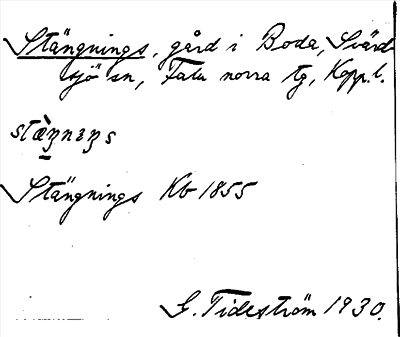 Stängnings, gård i Boda, Svärd-
sjö sn, Falu norra tg, Kopp.l.
stæ̀ŋnɪŋs
Stängnings Kb 1855
G. Tideström 1930.